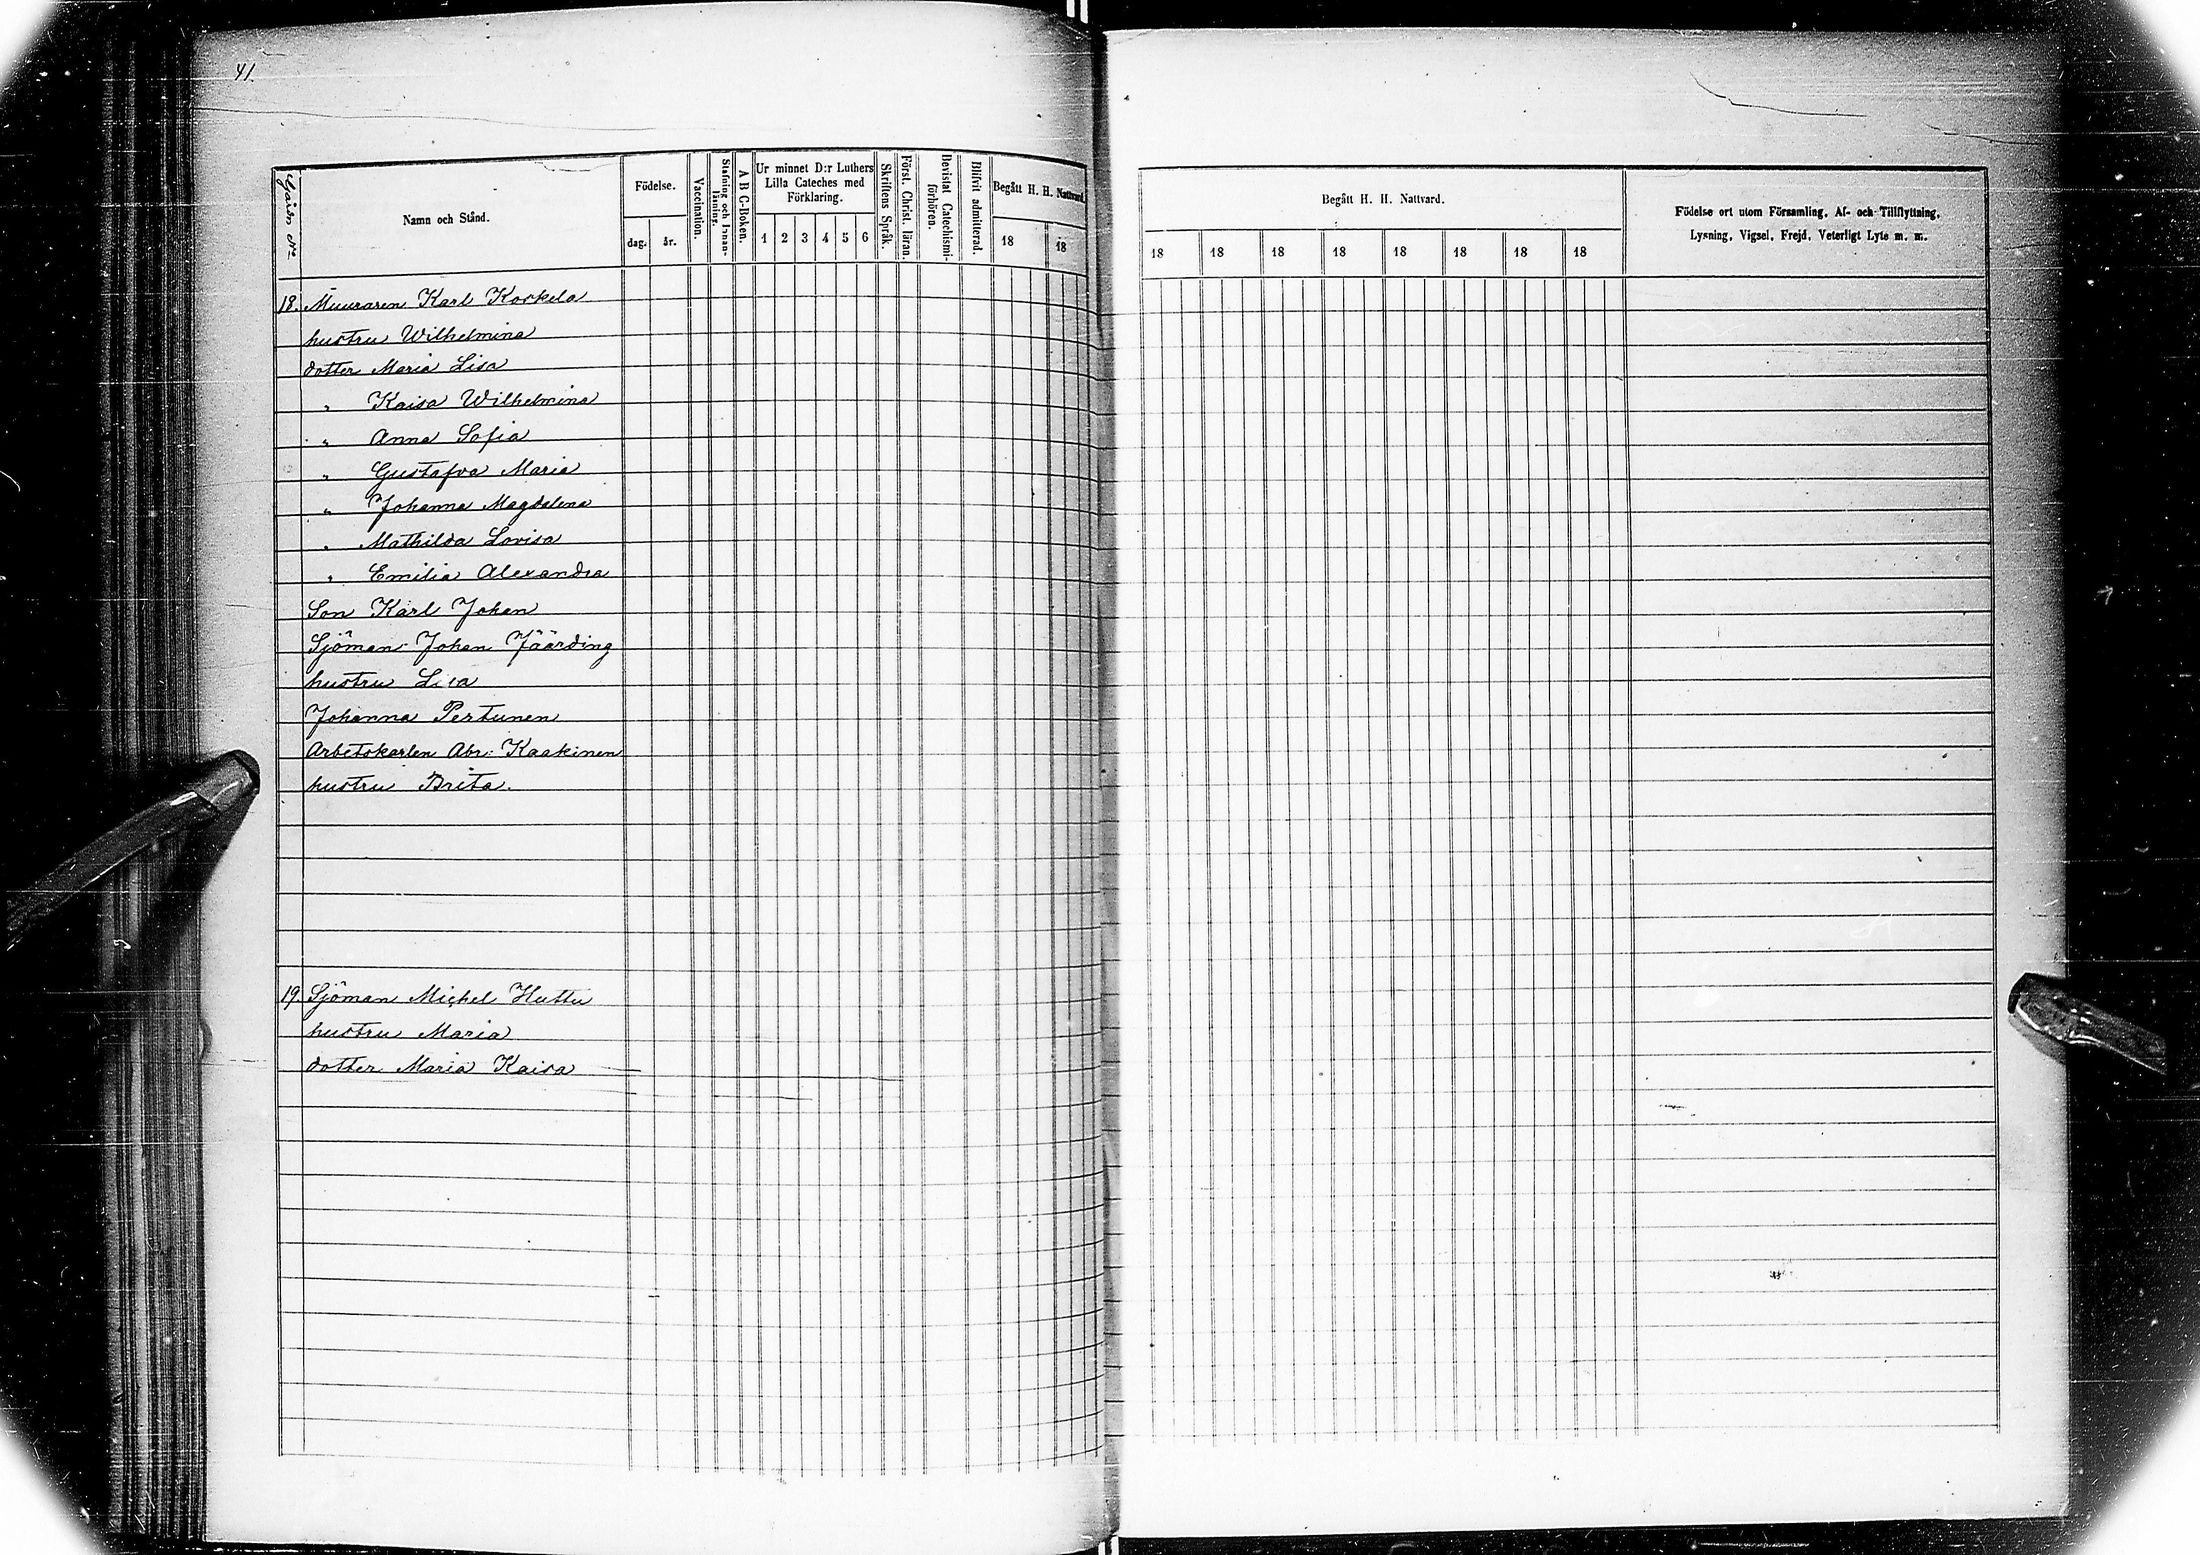 41.
Gårdn No
Namn och Stånd.
Födelse.
dag. år.
Vaccination.
Stafning och Innanläsning.
A B C-Boken.
Ur minnet D:r Luthers
Lilla Cateches med
Förklaring.
1 2 3 4 5 6
Skriftens Språk.
Först. Christ. läran.
Bevistat Catechismiförhören.
Blifvit admitterad.
Begått H. H. Nattvard.
18 18
Begått H. H. Nattvard.
18 18 18 18 18 18 18 18
Födelse ort utom Församling, Af- och Tillflyttning,
Lysning, Vigsel, Frejd, Veterligt Lyte m. m.
18. Muuraren Karl Koskela
hustru Wilhelmina
dotter Maria Lisa
" Kaisa Wilhelmina
" Anna Sofia
" Gustafva Maria
" Johanna Magdalena
" Mathilda Lovisa
" Emilia Alexandra
Son Karl Johan
Sjöman Johan Jäärding
hustru Lisa
Johanna Pertunen
Arbetskarlen Abr: Kaakinen
hustru Brita.
19. Sjöman Michel Huttu
hustru Maria
dotter Maria Kaisa